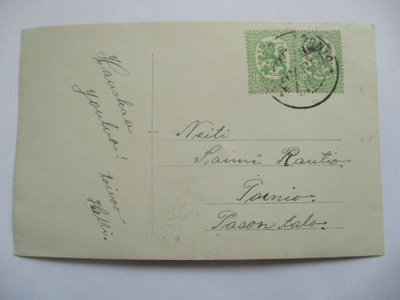 Hauskaa
joulua! toivoo
Helli.
Neiti
Saimi Rautio
Tornio.
Pason talo.